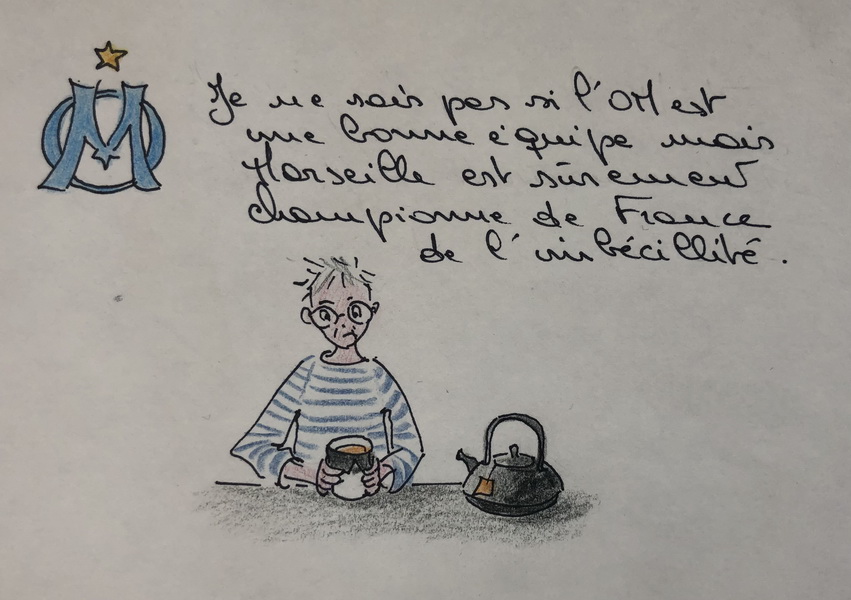 Je ne sais pas si l'OM est
une bonne équipe mais
Marseille est sûrement
championne de France
de l'imbécillité.